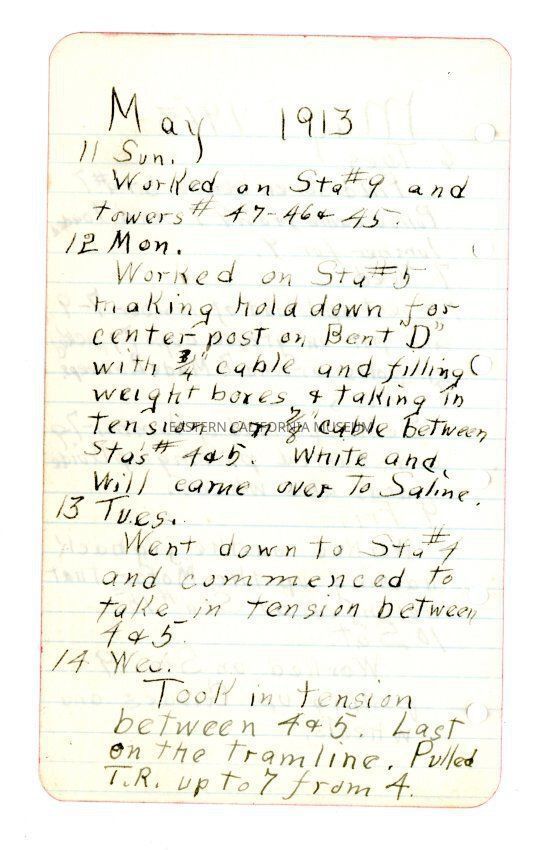 May 1913
11 Sun.
Worked on Sta #9 and
towers # 47-46 & 45.
12 Mon.
Worked on Sta #5
making hold down for
center post on Bent "D"
with 3/4" cable and filling
weight boxes & taking in
tension on 7/8" cable between
EASTERN CALIFORNIA MUSEUM
Stas # 4 & 5. White and
Will came over To Saline.
13 Tues.
Went down to Sta #4
and commenced to
take in tension between
4 & 5.
14 Wed.
Took in tension
between 4 & 5. Last
on the tramline. Pulled
T.R. up to 7 from 4.